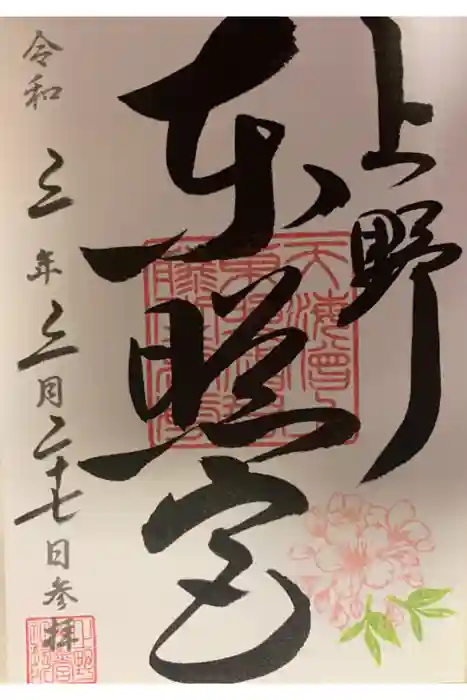 上野
東照宮
令和三年三月二十七日参拝